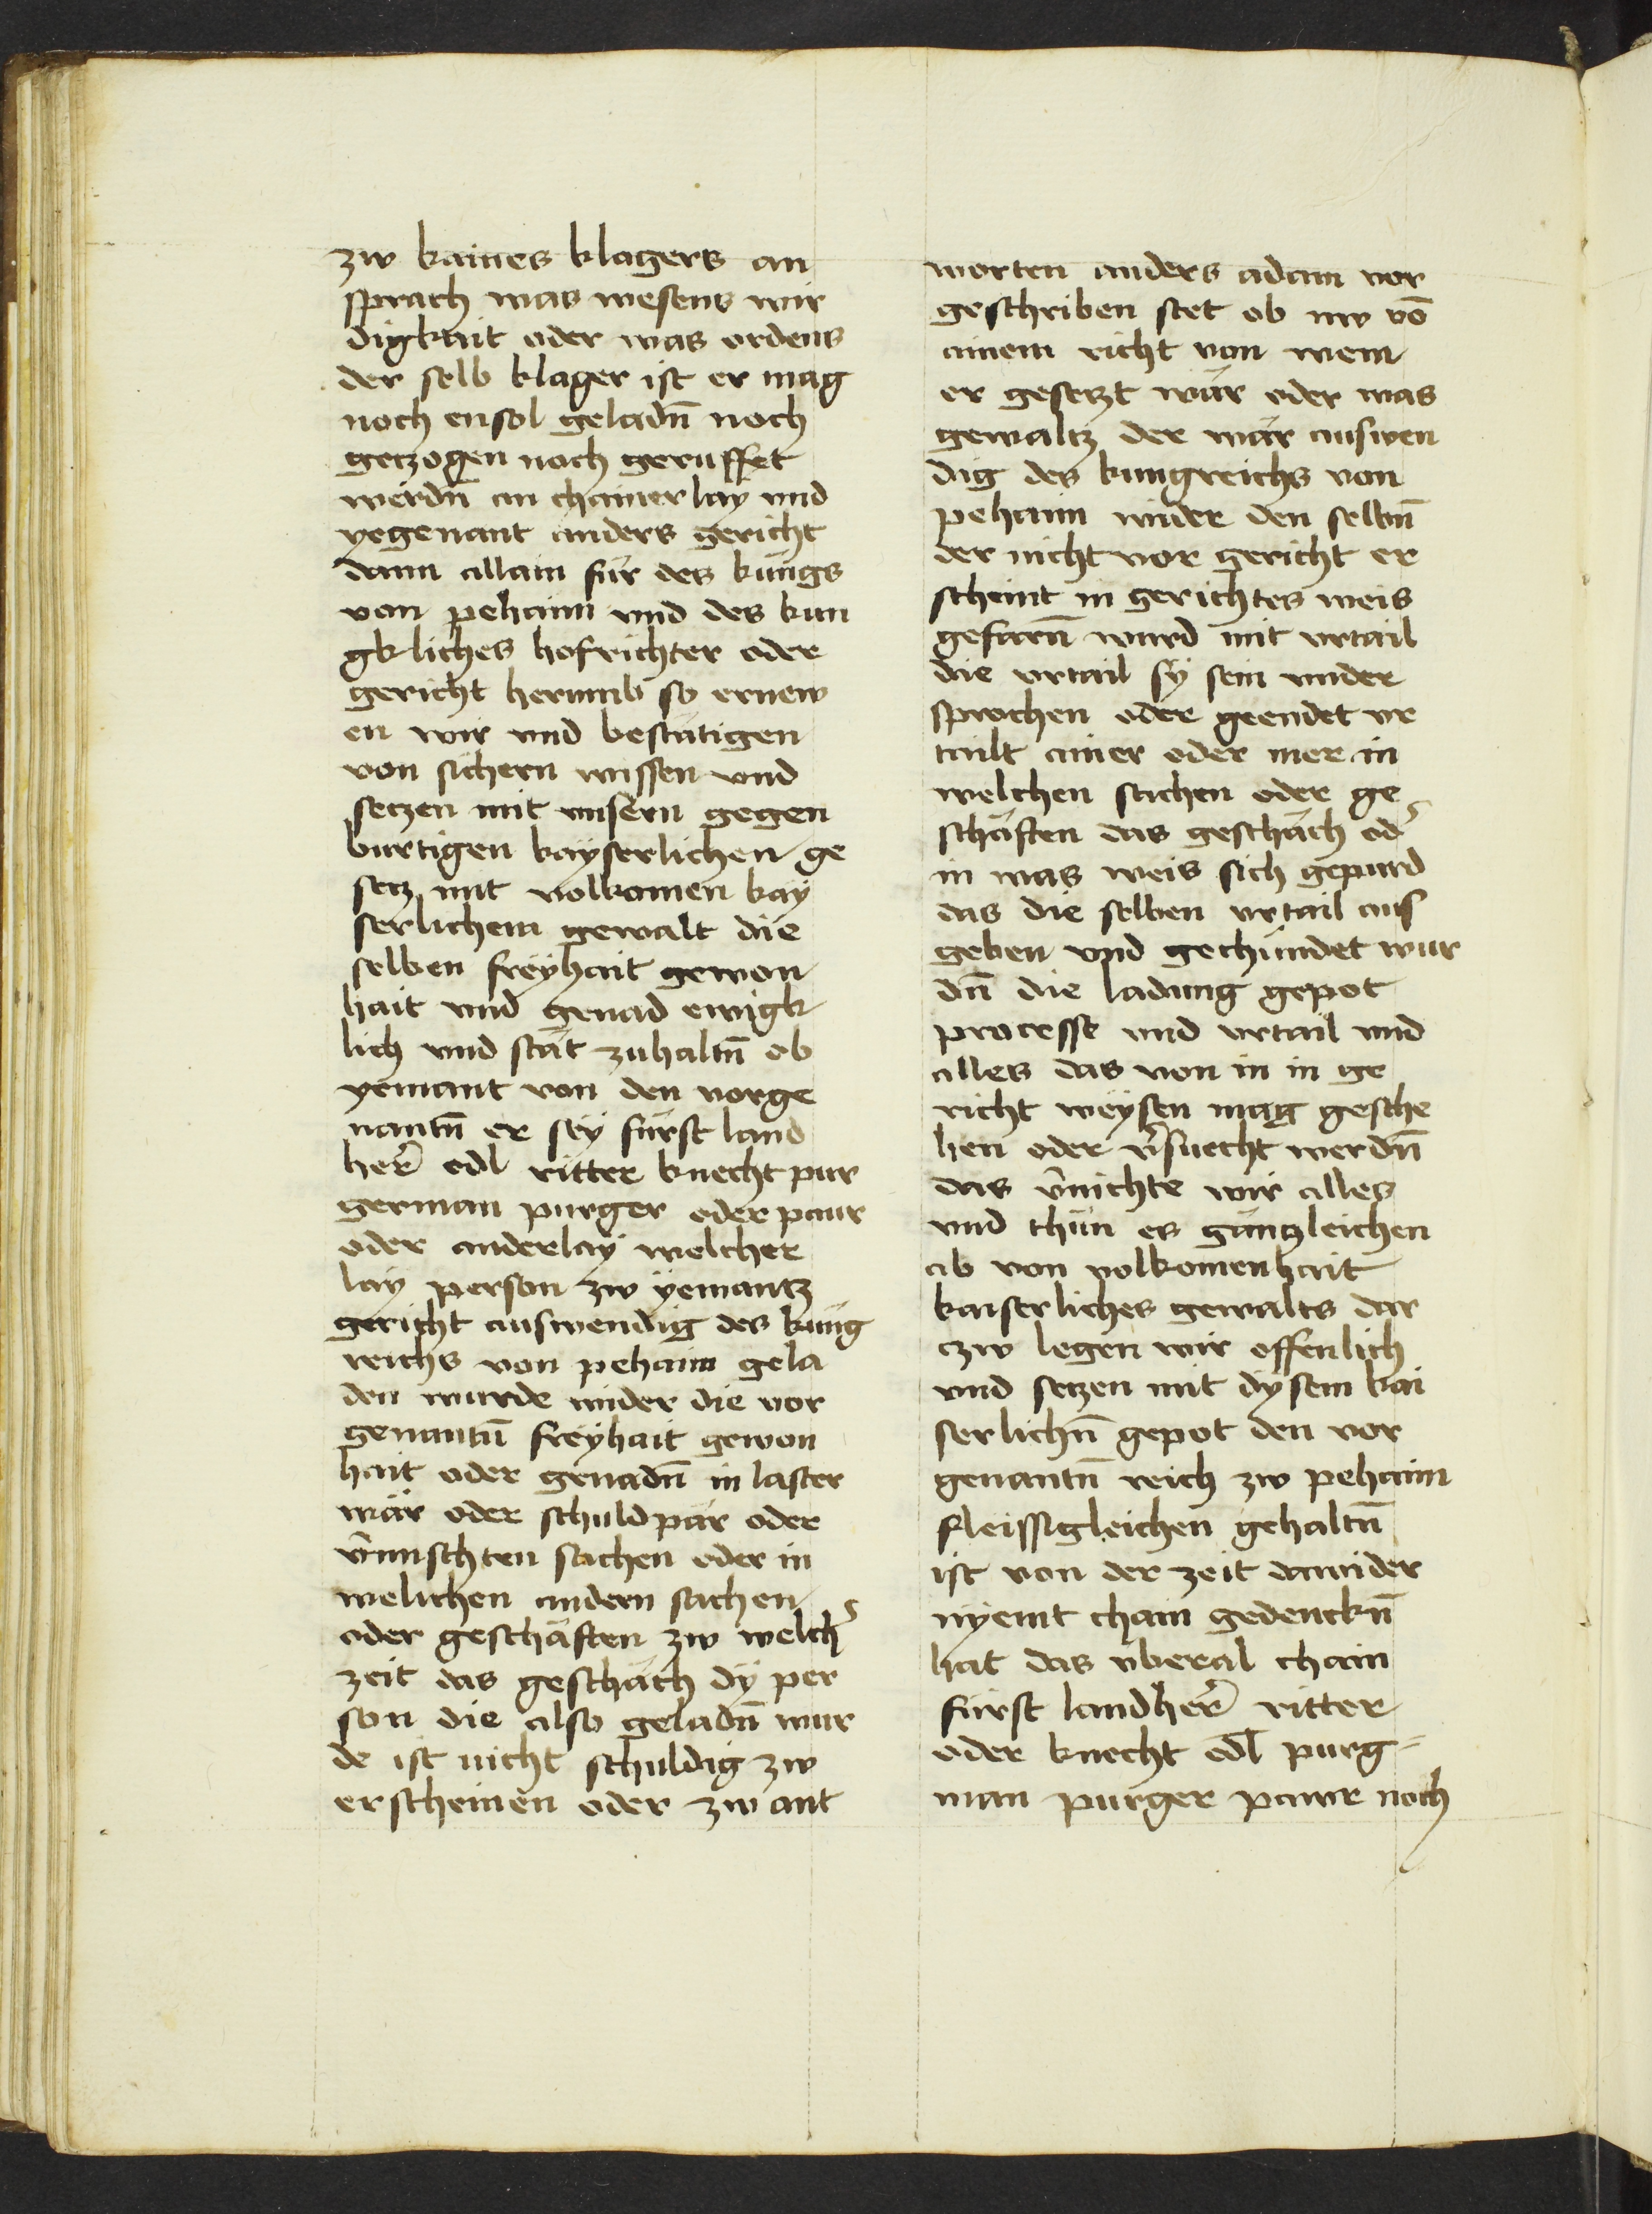 zw kaines klagers an
sprach was wesens wir
digkait oder was ordens
der selb klager ist er mag
noch ensol geladn̄ noch
getzogen noch geruffet
werdn̄ an chainerlay vnd
yegenant anders gericht
dann allain für des küngs
von pehaim vnd des kun
gkliches hofrichter oder
gericht herumb so ernew
en wir vnd bestätigen
von sichern wissen vnd
setzen mit vnsern gegen
burtigen kayserlichen ge
setz mit volkomen kay
serlichem gewalt die
selben freyhait gewon
hait vnd genad ewigk
lich vnd stät zuhaltn̄ ob
yemant von den vorge
nantn̄ er sey fürst land
her̄ edl ritter knecht pur
german purger oder paur
oder anderlay welcher
lay person zw yemantz
gericht auswendig des küng
reichs von pehaim gela
den wurde wider die vor
genantn̄ freyhait gewon
hait oder genadn̄ in laster
wär oder schuldpär oder
v̄mischten sachen oder in
welichen andern sachen
oder geschäften zw welch̄
zeit das geschäch dy per
son die also geladn̄ wur
de ist nicht schuldig zw
erscheinen oder zw ant
worten anders adam vor
geschriben stet ob nw vō
ainem richt von wem
er gesetzt wär oder was
gewaltz der wär auswen
dig des kungreichs von
pehaim wider den selbn̄
der nicht vor gericht er
scheint in gerichtes weis
gefarn̄ wurd mit vrtail
die vrtail sy sein vnder
sprochen oder geendet vr
tailt ainer oder mer in
welchen sachen oder ge
schäften das geschäch od̄
in was weis sich gepurd
das die selben vrtail aus
geben vnd gechundet wur
dn̄ die ladung gepot
processe vnd vrtail vnd
alles das von in in ge
richt weysen mag gesche
hen oder v̄suecht werdn̄
das v̄nichte wir alles
vnd thün es gäntzleichen
ab von volkomenhait
kaiserliches gewalts dar
czw legen wir offenlich
vnd setzen mit dysem kai
serlichn̄ gepot den vor
genantn̄ reich zw pehaim
fleissigleichen gehaltn̄
ist von der zeit dawider
nyemt chain gedenckn̄
hat das vberal chain
fürst landher̄ ritter
oder knecht edl purg-
man purger pawr noch